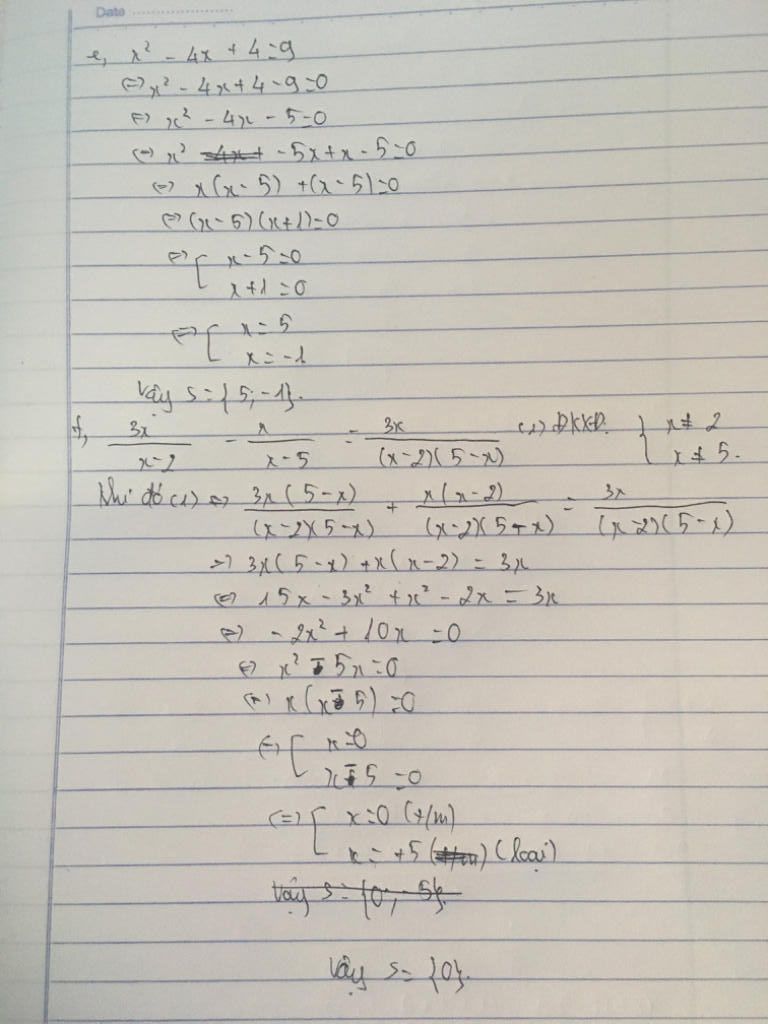 Date
e, x² - 4x + 4 = 9
<=> x² - 4x + 4 - 9 = 0
<=> x² - 4x - 5 = 0
<=> x² - 5x + x - 5 = 0
<=> x(x - 5) + (x - 5) = 0
<=> (x - 5)(x + 1) = 0
<=> [ x - 5 = 0
x + 1 = 0
<=> [ x = 5
x = -1
Vậy S = {5; -1}.
f, 3x/(x-2) - x/(x-5) = 3x/((x-2)(5-x)) (1) ĐKXĐ. { x ≠ 2
x ≠ 5.
Khi đó (1) <=> 3x(5-x)/((x-2)(5-x)) + x(x-2)/((x-2)(5-x)) = 3x/((x-2)(5-x))
=> 3x(5-x) + x(x-2) = 3x
<=> 15x - 3x² + x² - 2x = 3x
<=> -2x² + 10x = 0
<=> x² - 5x = 0
<=> x(x - 5) = 0
<=> [ x = 0
x - 5 = 0
<=> [ x = 0 (t/m)
x = +5 (loại)
Vậy S = {0; -5}.
Vậy S = {0}.